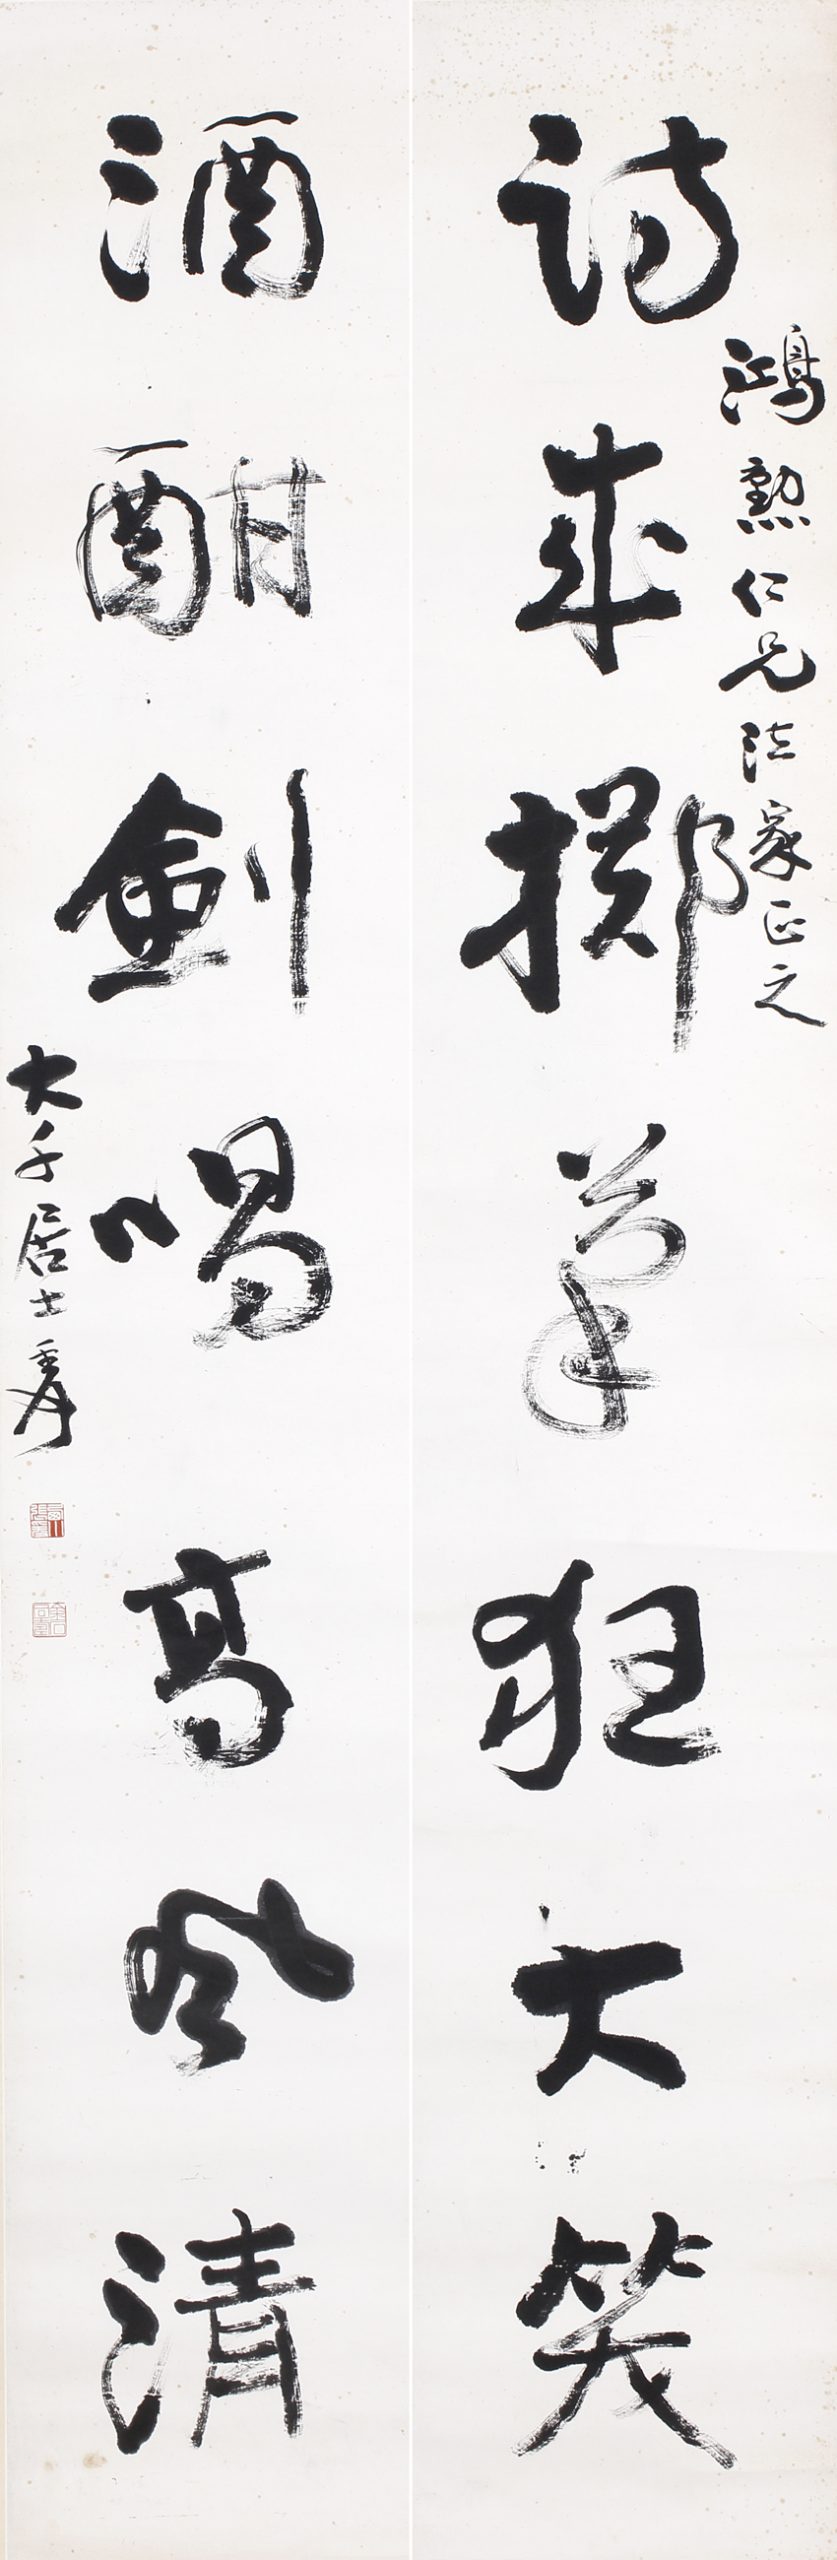 詩成擲筆狂大笑
鴻勳仁兄法家正之
酒酣劍喝高風清
大千居士爰